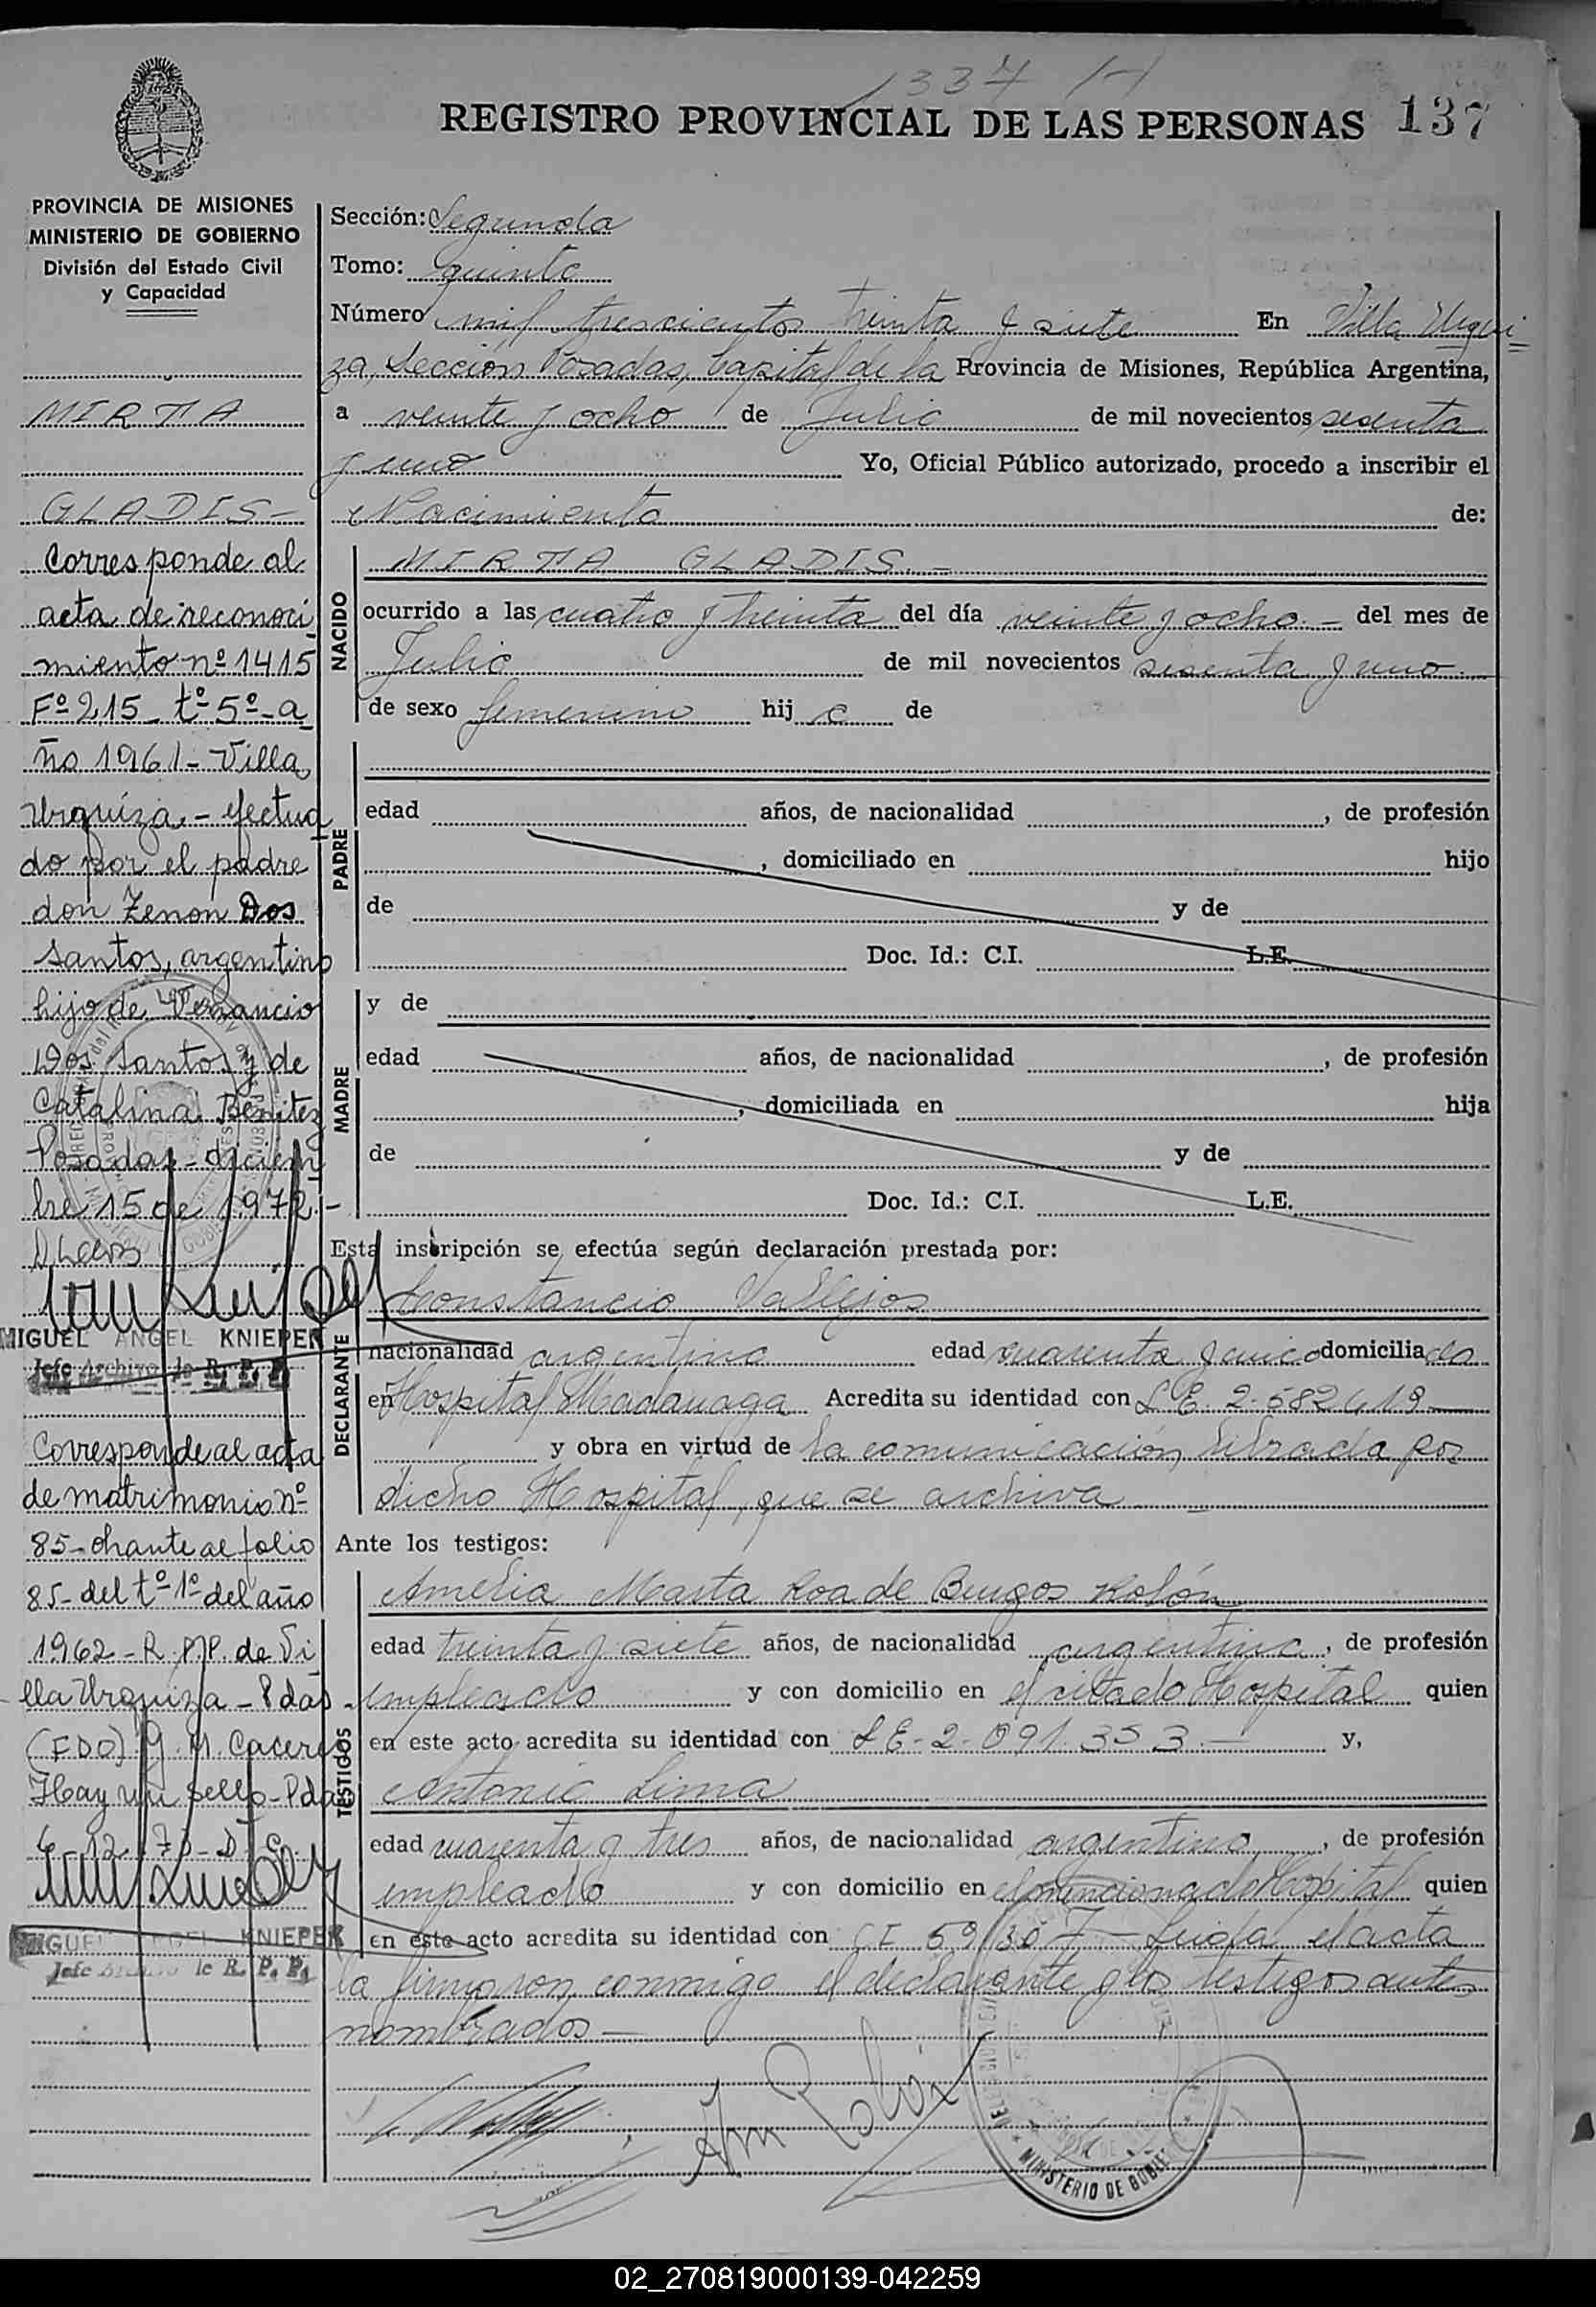 1337 H
REGISTRO PROVINCIAL DE LAS PERSONAS 137
PROVINCIA DE MISIONES
MINISTERIO DE GOBIERNO
División del Estado Civil
y Capacidad
MIRTA
GLADIS -
Corresponde al
acta de reconoci
miento nº 1415
Fº 215 tº 5º - a
ño 1961 - Villa
Urquiza - efectua
do por el padre
don Zenon Dos
Santos, argentino
hijo de Venancio
Dos Santos y de
Catalina Benitez
Posadas - diciem
bre 15 de 1972 -
MIGUEL ANGEL KNIEPER
Jefe Archivo de R. P. P.
Corresponde al acta
de matrimonio nº
85 - obrante al folio
85 - del tº 1º del año
1962 - R.P.P. de Vi
lla Urquiza - Pdas -
(FDO) G. M. Caceres
Hay un sello - Pdas
MIGUEL ANGEL KNIEPER
Jefe Archivo de R. P. P.
Sección: Segunda
Tomo: quinto
Número mil trescientos treinta y siete En Villa Urqui
za, Sección Posadas, Capital de la Provincia de Misiones, República Argentina,
a veinte y ocho de Julio de mil novecientos sesenta
y uno Yo, Oficial Público autorizado, procedo a inscribir el
Nacimiento de:
NACIDO
MIRTA GLADIS. -
ocurrido a las cuatro y treinta del día veinte y ocho - del mes de
Julio de mil novecientos sesenta y uno
de sexo femenino hij a de
PADRE
edad años, de nacionalidad , de profesión
, domiciliado en hijo
de y de
Doc. Id.: C.I. L.E.
MADRE
y de
edad años, de nacionalidad , de profesión
, domiciliada en hija
de y de
Doc. Id.: C.I. L.E.
Esta inscripción se efectúa según declaración prestada por:
DECLARANTE
Constancio Vallejos
nacionalidad argentino edad cuarenta y cinco domiciliado
en Hospital Madariaga Acredita su identidad con L E. 2.582.419
y obra en virtud de la comunicación librada por
dicho Hospital, que se archiva
Ante los testigos:
TESTIGOS
Amelia Marta Roa de Burgos Rolón
edad treinta y siete años, de nacionalidad argentina, de profesión
empleada y con domicilio en el citado Hospital quien
en este acto acredita su identidad con L E - 2.091.353 - y,
Antonio Lima
edad cuarenta y tres años, de nacionalidad argentino, de profesión
empleado y con domicilio en el mencionado Hospital quien
en este acto acredita su identidad con CI 59130 - Leida el acta
la firmaron conmigo el declarante y los testigos antes
nombrados -
MINISTERIO DE GOBIE
02_270819000139-042259